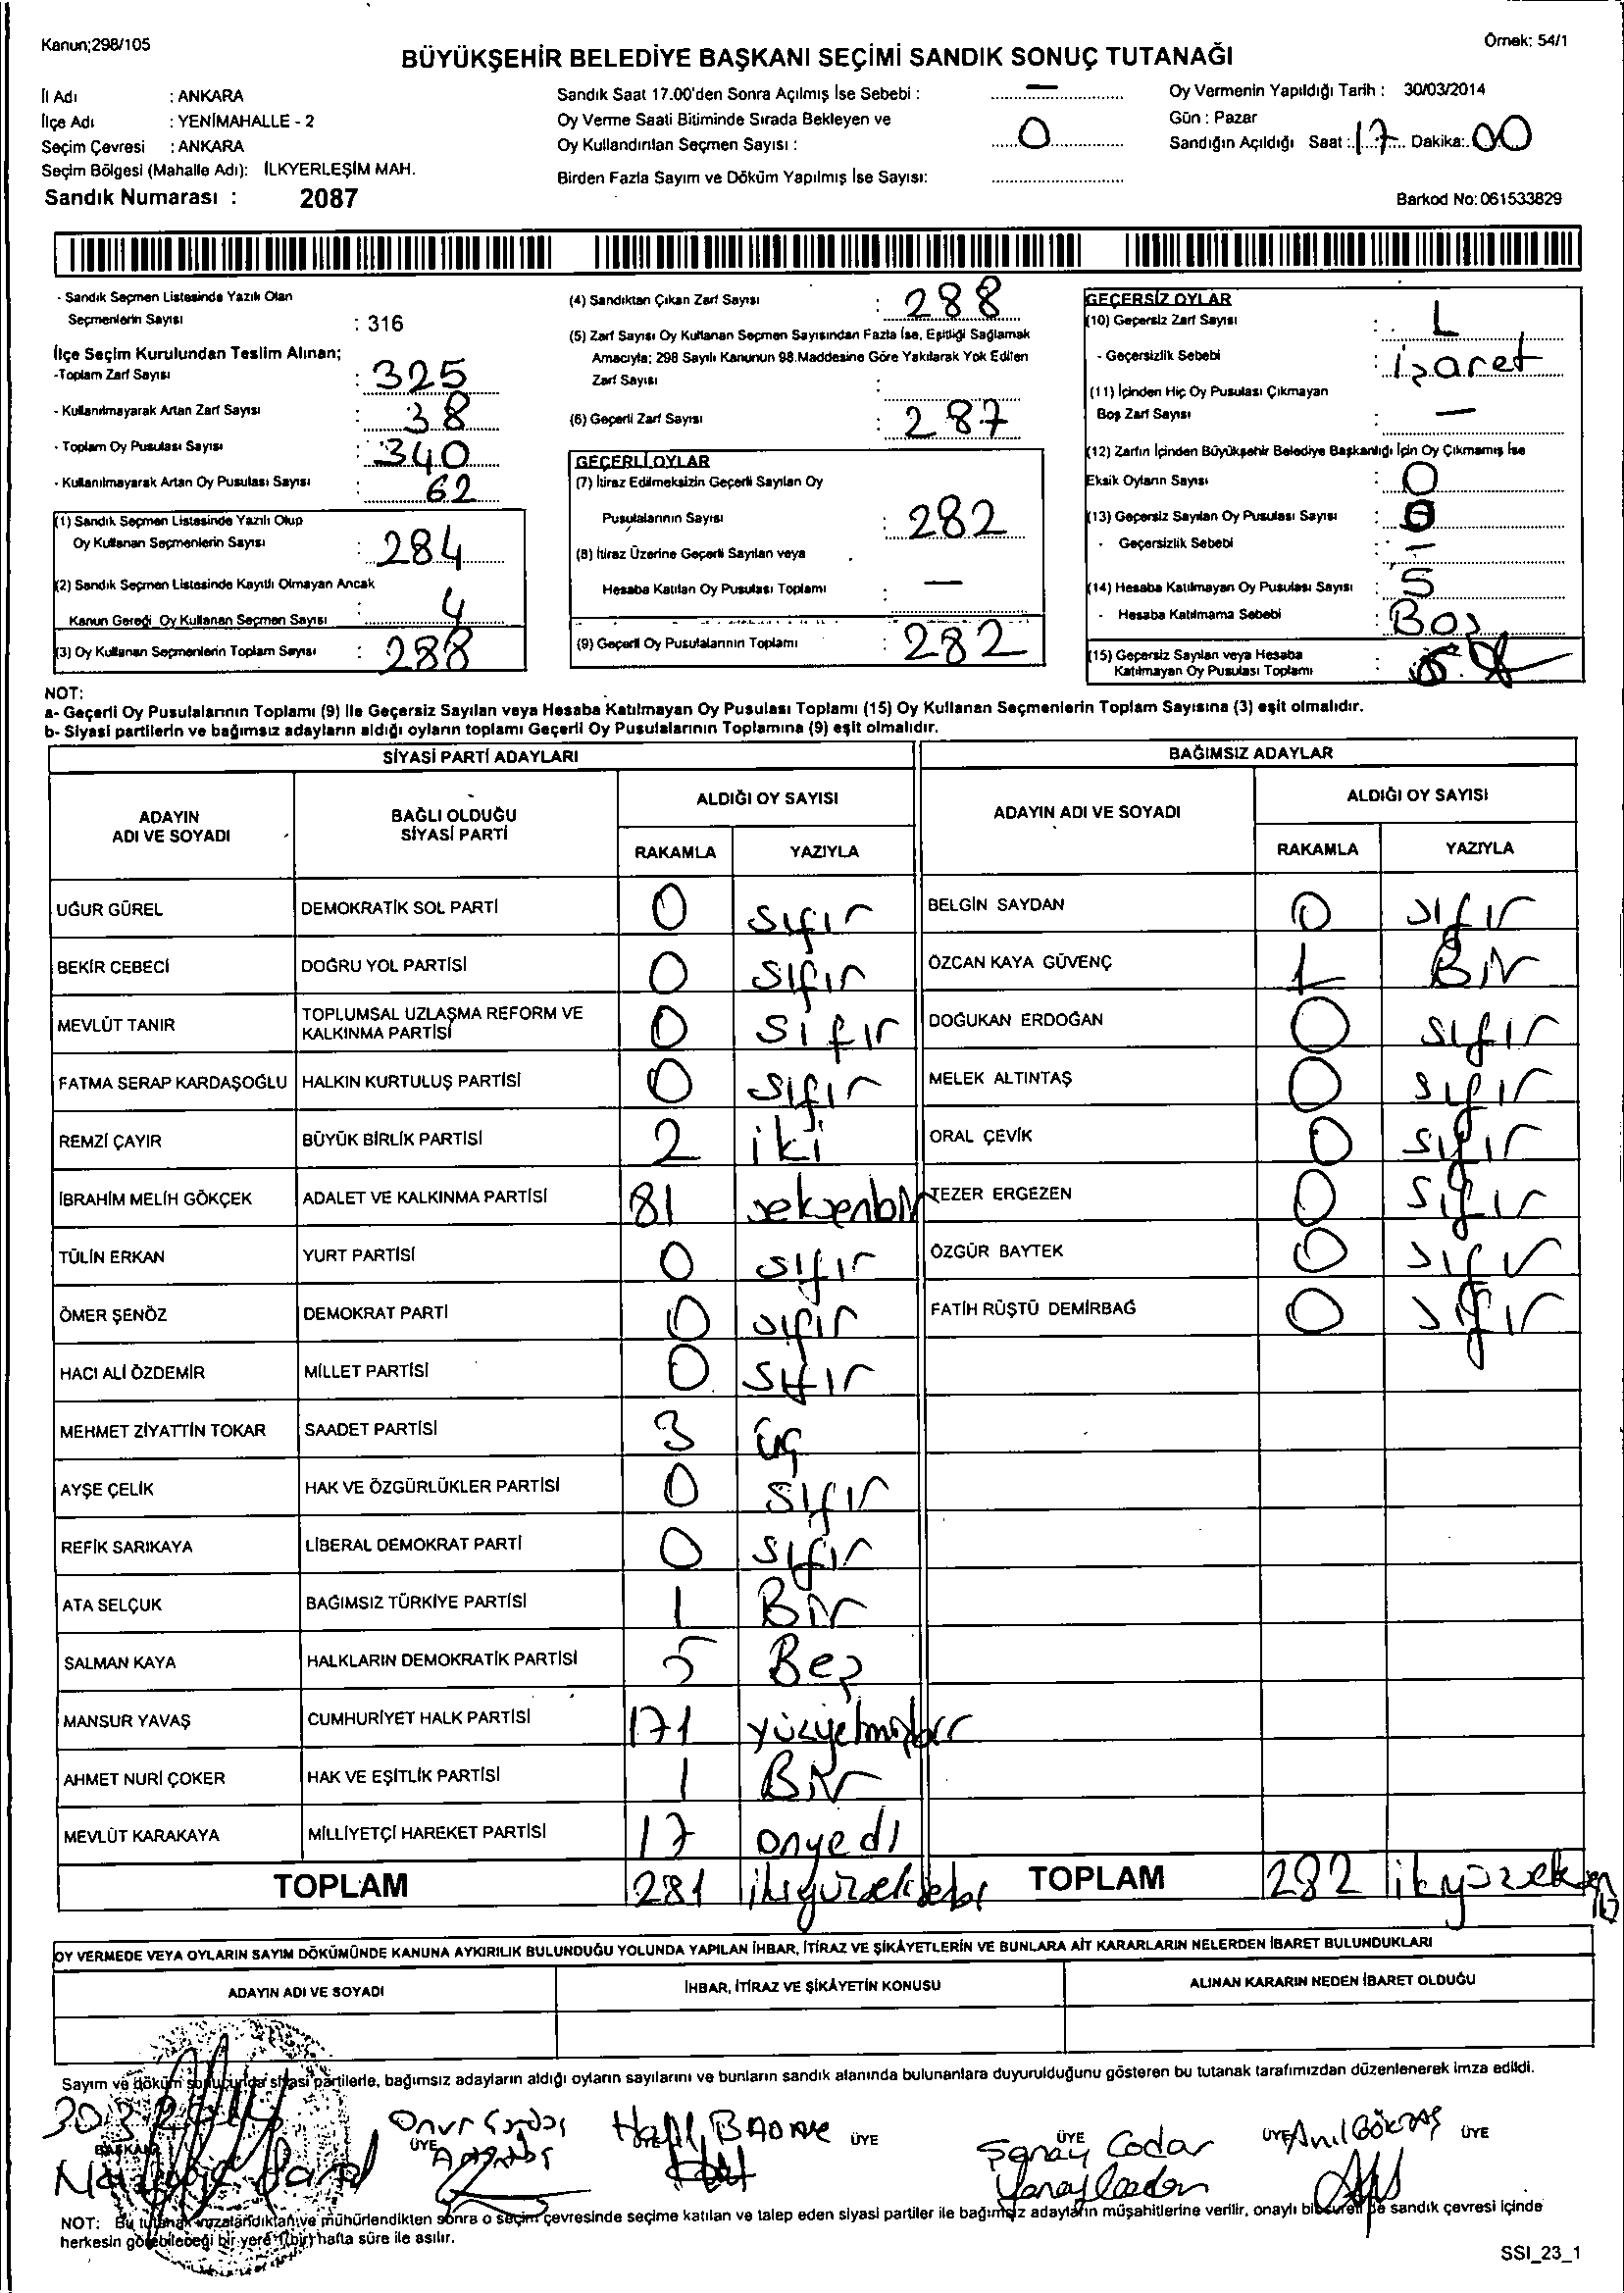 Kanun;298/105
Örnek: 54/1
BÜYÜKŞEHİR BELEDİYE BAŞKANI SEÇİMİ SANDIK SONUÇ TUTANAĞI
İl Adı : ANKARA
İlçe Adı : YENİMAHALLE - 2
Seçim Çevresi : ANKARA
Seçim Bölgesi (Mahalle Adı): İLKYERLEŞİM MAH.
Sandık Numarası : 2087
Sandık Saat 17.00'den Sonra Açılmış İse Sebebi : —
Oy Verme Saati Bitiminde Sırada Bekleyen ve
Oy Kullandırılan Seçmen Sayısı : 0
Birden Fazla Sayım ve Döküm Yapılmış İse Sayısı:
Oy Vermenin Yapıldığı Tarih : 30/03/2014
Gün : Pazar
Sandığın Açıldığı Saat : 17 Dakika: 00
Barkod No: 061533829
- Sandık Seçmen Listesinde Yazılı Olan
Seçmenlerin Sayısı : 316
İlçe Seçim Kurulundan Teslim Alınan;
-Toplam Zarf Sayısı : 325
- Kullanılmayarak Artan Zarf Sayısı : 38
- Toplam Oy Pusulası Sayısı : 340
- Kullanılmayarak Artan Oy Pusulası Sayısı : 62
(1) Sandık Seçmen Listesinde Yazılı Olup
Oy Kullanan Seçmenlerin Sayısı : 284
(2) Sandık Seçmen Listesinde Kayıtlı Olmayan Ancak
Kanun Gereği Oy Kullanan Seçmen Sayısı : 4
(3) Oy Kullanan Seçmenlerin Toplam Sayısı : 288
(4) Sandıktan Çıkan Zarf Sayısı : 288
(5) Zarf Sayısı Oy Kullanan Seçmen Sayısından Fazla İse, Eşitliği Sağlamak
Amacıyla; 298 Sayılı Kanunun 98.Maddesine Göre Yakılarak Yok Edilen
Zarf Sayısı :
(6) Geçerli Zarf Sayısı : 287
GEÇERLİ OYLAR
(7) İtiraz Edilmeksizin Geçerli Sayılan Oy
Pusulalarının Sayısı : 282
(8) İtiraz Üzerine Geçerli Sayılan veya
Hesaba Katılan Oy Pusulası Toplamı : —
(9) Geçerli Oy Pusulalarının Toplamı : 282
GEÇERSİZ OYLAR
(10) Geçersiz Zarf Sayısı : 1
- Geçersizlik Sebebi : işaret
(11) İçinden Hiç Oy Pusulası Çıkmayan
Boş Zarf Sayısı : —
(12) Zarfın İçinden Büyükşehir Belediye Başkanlığı İçin Oy Çıkmamış İse
Eksik Oyların Sayısı : 0
(13) Geçersiz Sayılan Oy Pusulası Sayısı : 0
- Geçersizlik Sebebi : —
(14) Hesaba Katılmayan Oy Pusulası Sayısı : 5
- Hesaba Katılmama Sebebi : Boş
(15) Geçersiz Sayılan veya Hesaba
Katılmayan Oy Pusulası Toplamı :
NOT:
a- Geçerli Oy Pusulalarının Toplamı (9) ile Geçersiz Sayılan veya Hesaba Katılmayan Oy Pusulası Toplamı (15) Oy Kullanan Seçmenlerin Toplam Sayısına (3) eşit olmalıdır.
b- Siyasi partilerin ve bağımsız adayların aldığı oyların toplamı Geçerli Oy Pusulalarının Toplamına (9) eşit olmalıdır.
SİYASİ PARTİ ADAYLARI
ADAYIN ADI VE SOYADI
BAĞLI OLDUĞU SİYASİ PARTİ
ALDIĞI OY SAYISI
RAKAMLA YAZIYLA
UĞUR GÜREL DEMOKRATİK SOL PARTİ 0 sıfır
BEKİR CEBECİ DOĞRU YOL PARTİSİ 0 sıfır
MEVLÜT TANIR TOPLUMSAL UZLAŞMA REFORM VE KALKINMA PARTİSİ 0 sıfır
FATMA SERAP KARDAŞOĞLU HALKIN KURTULUŞ PARTİSİ 0 sıfır
REMZİ ÇAYIR BÜYÜK BİRLİK PARTİSİ 2 iki
İBRAHİM MELİH GÖKÇEK ADALET VE KALKINMA PARTİSİ 81 seksenbir
TÜLİN ERKAN YURT PARTİSİ 0 sıfır
ÖMER ŞENÖZ DEMOKRAT PARTİ 0 sıfır
HACI ALİ ÖZDEMİR MİLLET PARTİSİ 0 sıfır
MEHMET ZİYATTİN TOKAR SAADET PARTİSİ 3 üç
AYŞE ÇELİK HAK VE ÖZGÜRLÜKLER PARTİSİ 0 sıfır
REFİK SARIKAYA LİBERAL DEMOKRAT PARTİ 0 sıfır
ATA SELÇUK BAĞIMSIZ TÜRKİYE PARTİSİ 1 Bir
SALMAN KAYA HALKLARIN DEMOKRATİK PARTİSİ 5 Beş
MANSUR YAVAŞ CUMHURİYET HALK PARTİSİ 171 yüzyetmişbir
AHMET NURİ ÇOKER HAK VE EŞİTLİK PARTİSİ 1 Bir
MEVLÜT KARAKAYA MİLLİYETÇİ HAREKET PARTİSİ 17 onyedi
TOPLAM 281 ikiyüzseksenbir
BAĞIMSIZ ADAYLAR
ADAYIN ADI VE SOYADI
ALDIĞI OY SAYISI
RAKAMLA YAZIYLA
BELGİN SAYDAN 0 sıfır
ÖZCAN KAYA GÜVENÇ 1 Bir
DOĞUKAN ERDOĞAN 0 sıfır
MELEK ALTINTAŞ 0 sıfır
ORAL ÇEVİK 0 sıfır
TEZER ERGEZEN 0 sıfır
ÖZGÜR BAYTEK 0 sıfır
FATİH RÜŞTÜ DEMİRBAĞ 0 sıfır
TOPLAM 282
OY VERMEDE VEYA OYLARIN SAYIM DÖKÜMÜNDE KANUNA AYKIRILIK BULUNDUĞU YOLUNDA YAPILAN İHBAR, İTİRAZ VE ŞİKÂYETLERİN VE BUNLARA AİT KARARLARIN NELERDEN İBARET BULUNDUKLARI
ADAYIN ADI VE SOYADI
İHBAR, İTİRAZ VE ŞİKÂYETİN KONUSU
ALINAN KARARIN NEDEN İBARET OLDUĞU
Sayım ve döküm sonucunda siyasi partilerle, bağımsız adayların aldığı oyların sayılarını ve bunların sandık alanında bulunanlara duyurulduğunu gösteren bu tutanak tarafımızdan düzenlenerek imza edildi.
BAŞKAN
Onur
ÜYE
Halil
ÜYE
Şenay Codar
ÜYE
ÜYE Anıl GÖKTAŞ ÜYE
NOT: Bu tutanak imzalandıktan ve mühürlendikten sonra o seçim çevresinde seçime katılan ve talep eden siyasi partiler ile bağımsız adayların müşahitlerine verilir, onaylı bir sureti de sandık çevresi içinde
herkesin görebileceği bir yere 1(bir) hafta süre ile asılır.
SSI_23_1